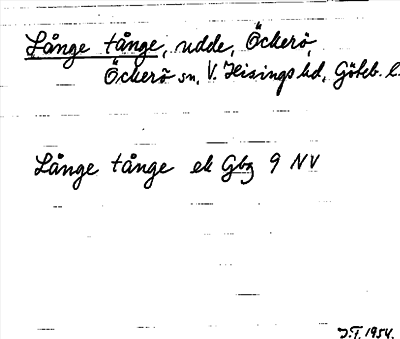 Långe tånge, udde, Öckerö,
Öckerö sn, V. Hisings hd, Göteb. l.
Långe tånge ek Gbg 9 NV
J.T. 1954.